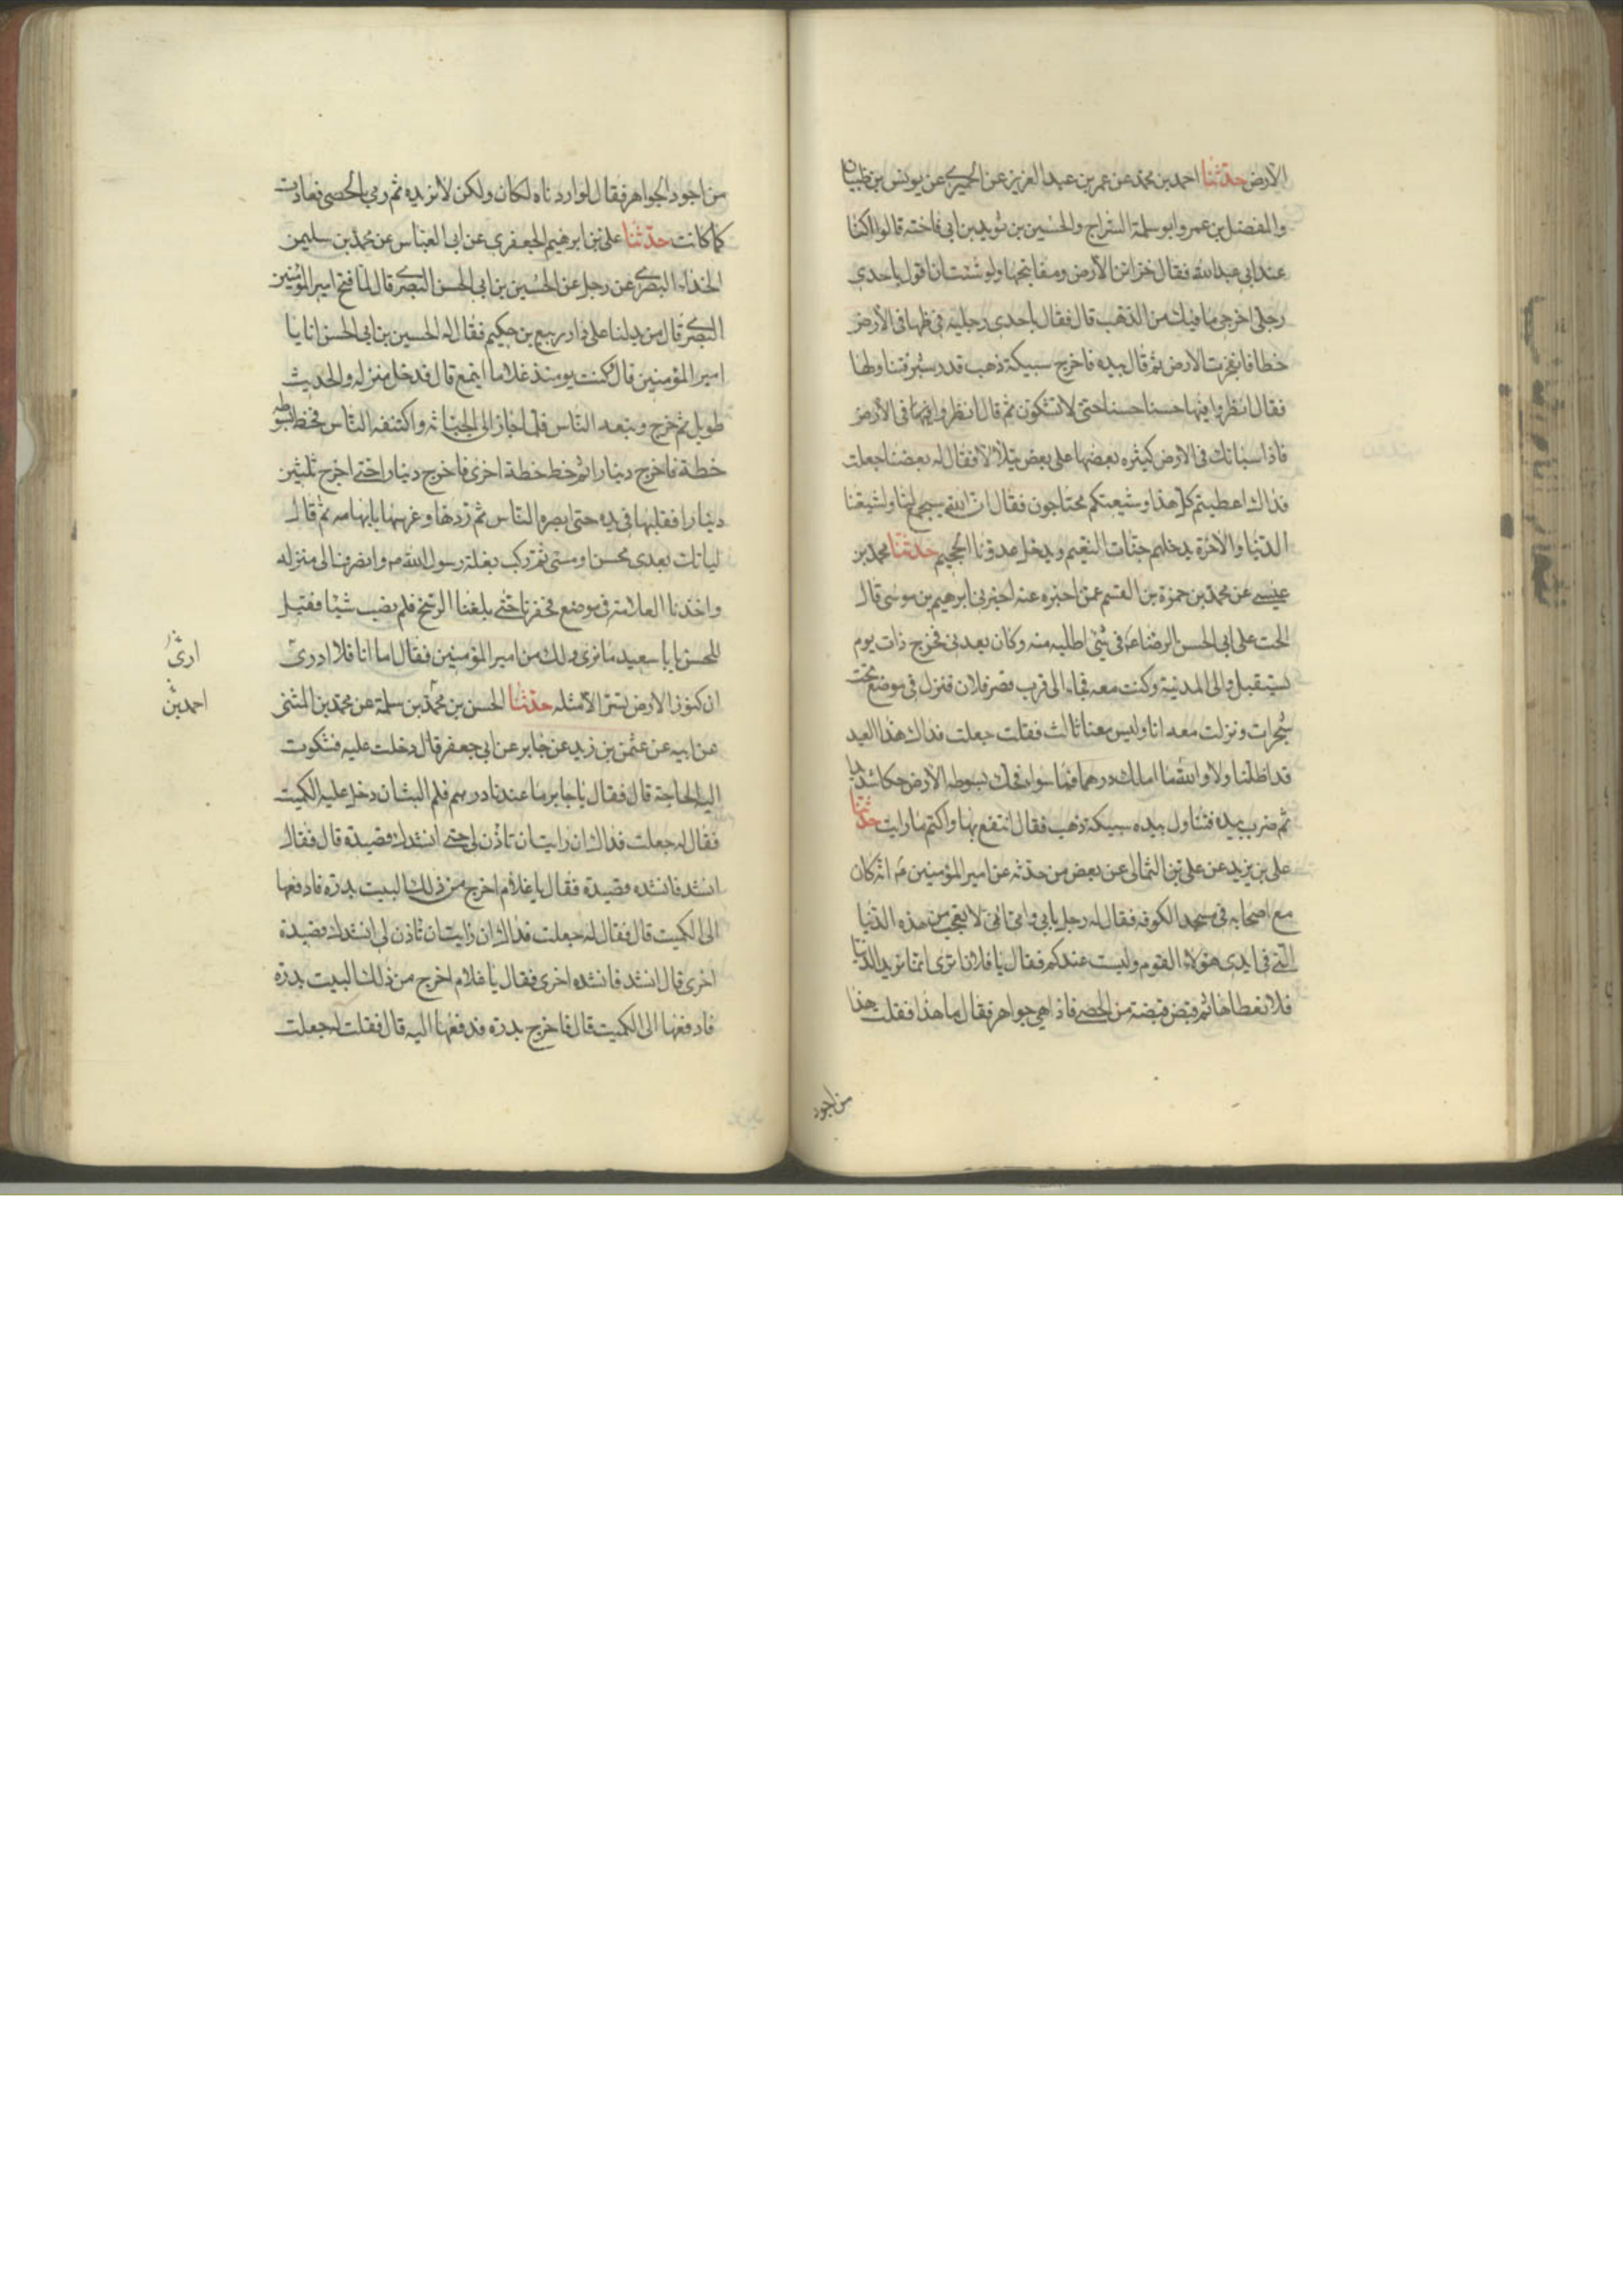 الارض حدثنا احمد بن محمد عن عمر بن عبد العزيز عن الحميري عن يونس بن ظبيان
والمفضل بن عمر وابو سلمة السراج والحسين بن ثوير بن ابي فاخته قالوا كنا
عند ابي عبد الله فقال خزائن الارض ومفاتيحها ولو شئت ان اقول باحدى
رجلي اخرجي ما فيك من الذهب قال فقال باحدى رجليه فخطها في الارض
خطا فانفجرت الارض ثم قال بيده فاخرج سبيكة ذهب قدر شبر فتناولها
فقال انظروا فيها حسنا حسنا حتى لا تشكون ثم قال انظروا فيها في الارض
فاذا سبائك في الارض كثيره بعضها على بعض يتلالا فقال له بعضنا جعلت
فداك اعطيتم كل هذا وشيعتكم محتاجون فقال ان الله سيجمع لنا ولشيعتنا
الدنيا والاخرة يدخلهم جنات النعيم ويدخل عدونا الجحيم حدثنا محمد بن
عيسى عن محمد بن حمزة بن القسم عمن اخبره عنه اخبرني ابرهيم بن موسى قال
الحت على ابي الحسن الرضا ع في شئ اطلبه منه وكان يعدني فخرج ذات يوم
يستقبل والى المدينة وكنت معه فجاء الى قرب قصر فلان فنزل في موضع تحت
شجرات ونزلت معه انا وليس معنا ثالث فقلت جعلت فداك هذا العيد
قد اظلنا ولا والله ما املك درهما فما سواه فحك بسوطه الارض حكا شديدا
ثم ضرب بيده فتناول بيده سبيكة ذهب فقال انتفع بها واكتم ما رايت حدثنا
علي بن يزيد عن علي بن الثمالي عن بعض من حدثه عن امير المؤمنين ع انه كان
مع اصحابه في مسجد الكوفه فقال له رجل بابي وامي اني لاتعجب من هذه الدنيا
التي في ايدي هؤلاء القوم وليست عندكم فقال يا فلان اترى انما نريد الدنيا
فلا نعطاها ثم قبض قبضة من الحصى فاذا هي جواهر فقال ما هذا فقلت هذا
من اجود
من اجود الجواهر فقال لو اردناه لكان ولكن لا نريده ثم رمى بالحصى فعادت
كما كانت حدثنا علي بن ابرهيم الجعفري عن ابي العباس عن محمد بن سليمن
الحذاء البصري عن رجل عن الحسين بن ابي الحسن البصري قال لما فتح امير المؤمنين
البصرة قال من يدلنا على دار ربيع بن حكيم فقال له الحسين بن ابي الحسن انا يا
امير المؤمنين قال وكنت يومئذ غلاما ايفع قال فدخل منزله والحديث
طويل ثم خرج وتبعه الناس فلما اجاز الى الجبانة واكتنفه الناس فخط بسوطه
خطة فاخرج دينارا ثم خط خطة اخرى فاخرج دينارا حتى اخرج ثلثين
دينارا فقلبها في يده حتى ابصره الناس ثم ردها وغرسها بابهامه ثم قال
ليأتك بعدي محسن او مسئ ثم ركب بغلة رسول الله ص وانصرف الى منزله
واخذنا العلامة في موضع فحفرنا حتى بلغنا الرسخ فلم نصب شيئا فقيل
للحسن يا با سعيد ما ترى ذلك من امير المؤمنين فقال اما انا فلا ادري
ان كنوز الارض تسير الا لمثله حدثنا الحسن بن محمد بن سلمة عن محمد بن المثنى
عن ابيه عن عثمن بن زيد عن جابر عن ابي جعفر قال دخلت عليه فشكوت
اليه الحاجة قال فقال يا جابر ما عندنا درهم فلم البث ان دخل عليه الكميت
فقال له جعلت فداك ان رايت ان تاذن لي حتى انشدك قصيدة قال فقال
انشد فانشده قصيدة فقال يا غلام اخرج من ذلك البيت بدره فادفعها
الى الكميت قال فقال له جعلت فداك ان رايت ان تاذن لي انشدك قصيدة
اخرى قال انشد فانشده اخرى فقال يا غلام اخرج من ذلك البيت بدره
فادفعها الى الكميت قال فاخرج بدره فدفعها اليه قال فقلت له جعلت
ارى
احمد بن